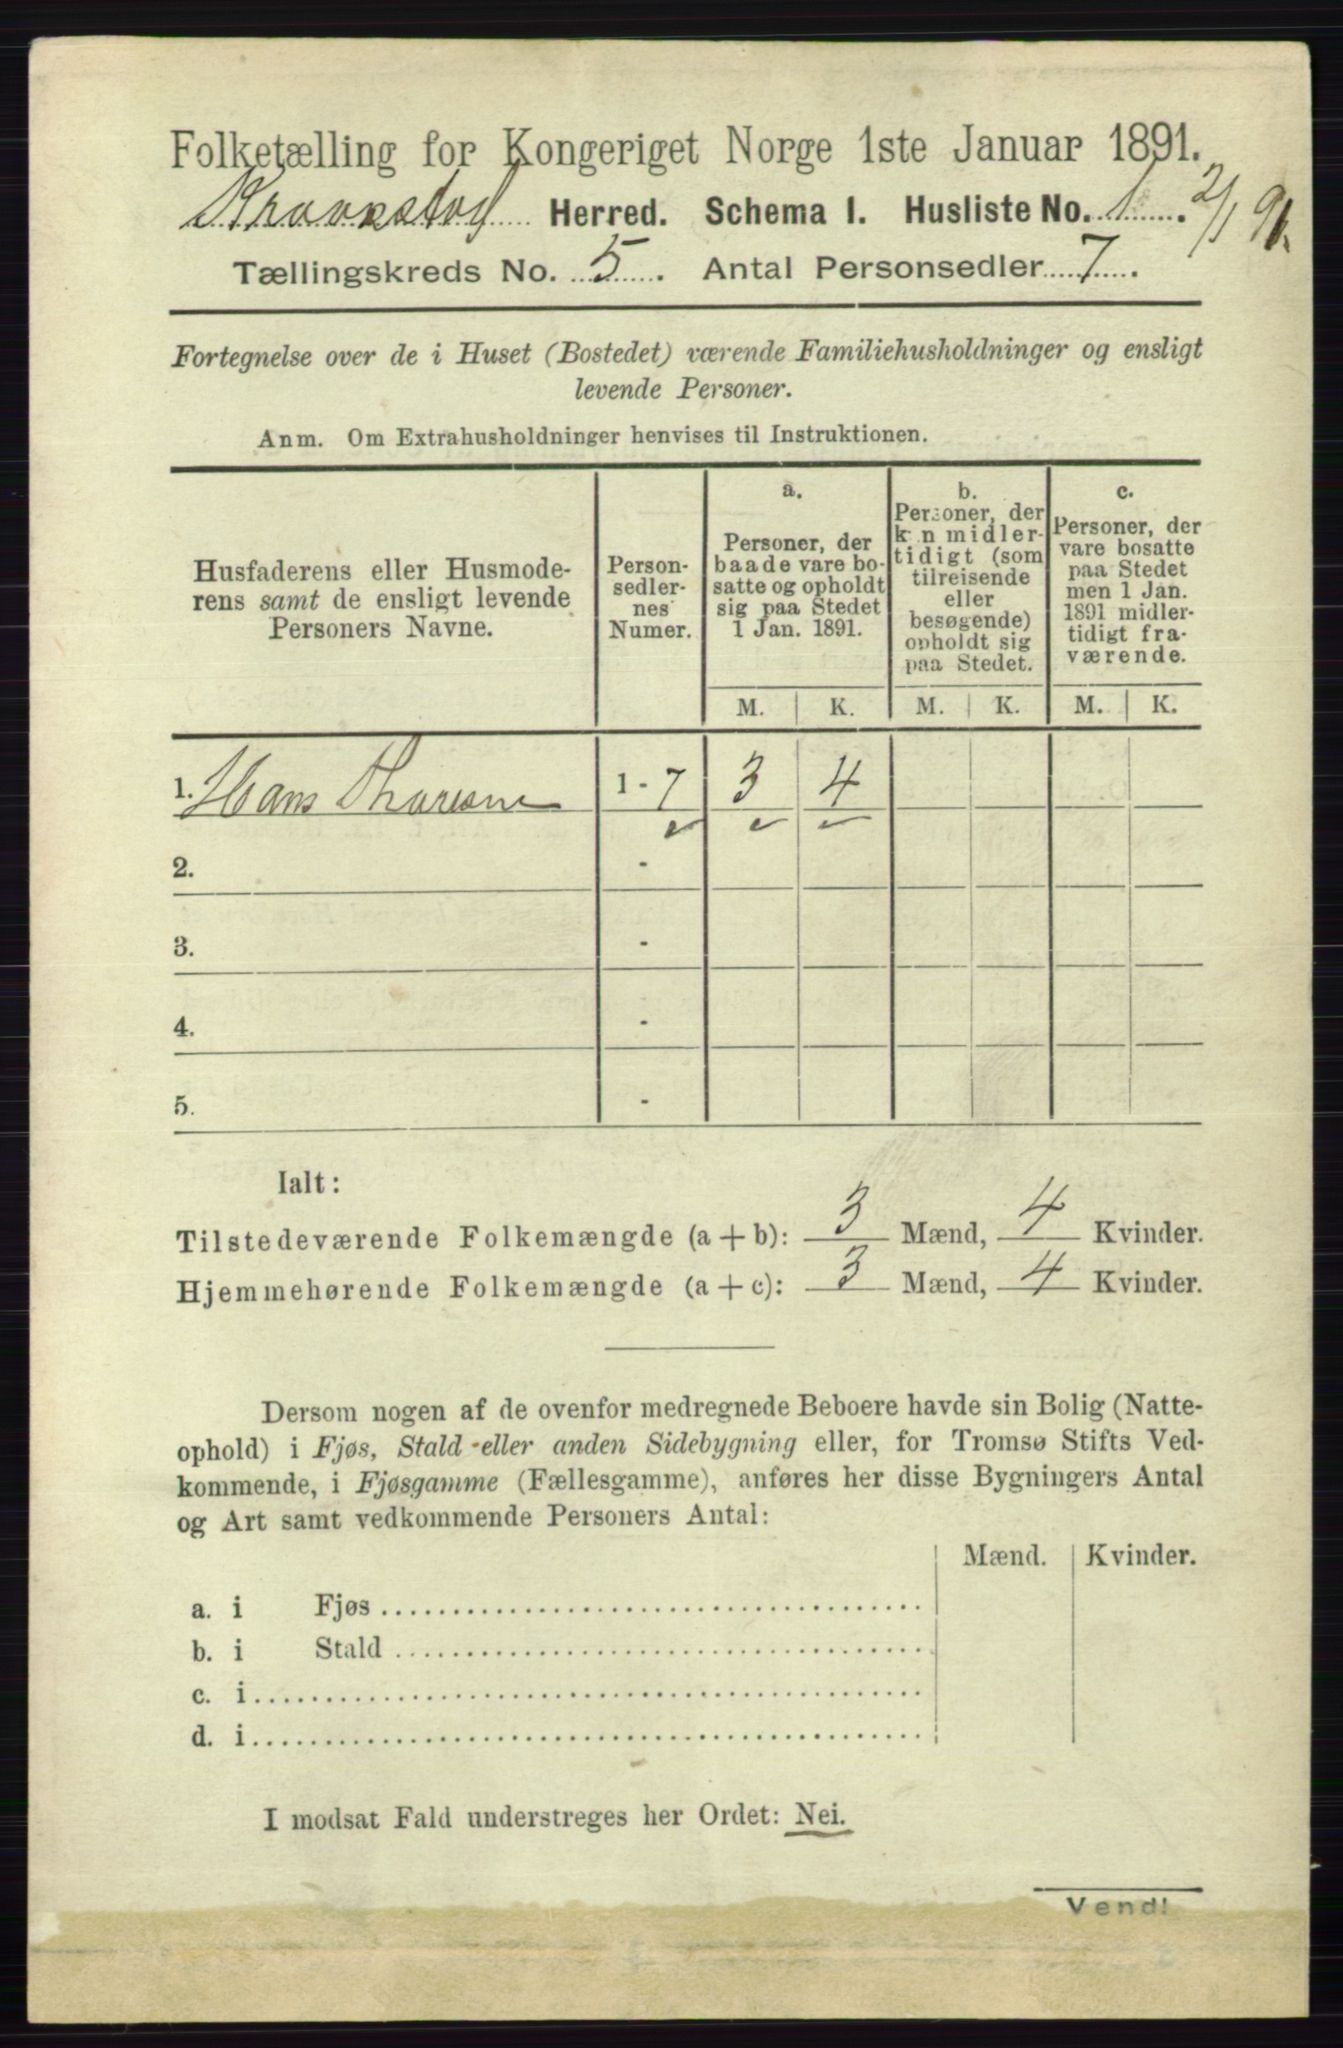 Folketælling for Kongeriget Norge 1ste Januar 1891.
Kraakstad Herred. Schema 1. Husliste No. 1. 2/1 91.
Tællingskreds No. 5. Antal Personsedler 7.
Fortegnelse over de i Huset (Bostedet) værende Familiehusholdninger og ensligt
levende Personer.
Anm. Om Extrahusholdninger henvises til Instruktionen.
Husfaderens eller Husmode-
rens samt de ensligt levende
Personers Navne.
Person-
sedler-
nes
Numer.
a.
Personer, der
baade vare bo-
satte og opholdt
sig paa Stedet
1 Jan. 1891.
b.
Personer, der
kun midler-
tidigt (som
tilreisende
eller
besøgende)
opholdt sig
paa Stedet.
c.
Personer, der
vare bosatte
paa Stedet
men 1 Jan.
1891 midler-
tidigt fra-
værende.
M. K. M. K. M. K.
1. Hans 1 - 7 3 4
2. -
3. -
4. -
5. -
Ialt:
Tilstedeværende Folkemængde (a + b): 3 Mænd, 4 Kvinder.
Hjemmehørende Folkemængde (a + c): 3 Mænd, 4 Kvinder.
Dersom nogen af de ovenfor medregnede Beboere havde sin Bolig (Natte-
ophold) i Fjøs, Stald eller anden Sidebygning eller, for Tromsø Stifts Ved-
kommende, i Fjøsgamme (Fællesgamme), anføres her disse Bygningers Antal
og Art samt vedkommende Personers Antal:
Mænd. Kvinder.
a. i Fjøs
b. i Stald
c. i
d. i
I modsat Fald understreges her Ordet: Nei.
Vend!